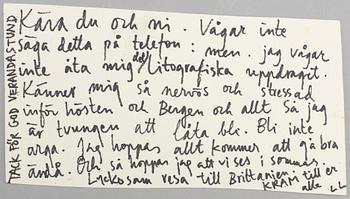 Kära du och ni. Vågar inte
säga detta på telefon: men. jag vågar
inte åta mig det litografiska uppdraget.
Känner mig så nervös och stressad
inför hösten och Bergen och allt. Så jag
är tvungen att låta bli. Bli inte
arga. Jag hoppas allt kommer att gå bra
ändå. Och så hoppas jag att vi ses i sommar.
Lyckosam resa till Brittanien!
KRAM till er
alla LL
TACK FÖR GOD VERANDASTUND